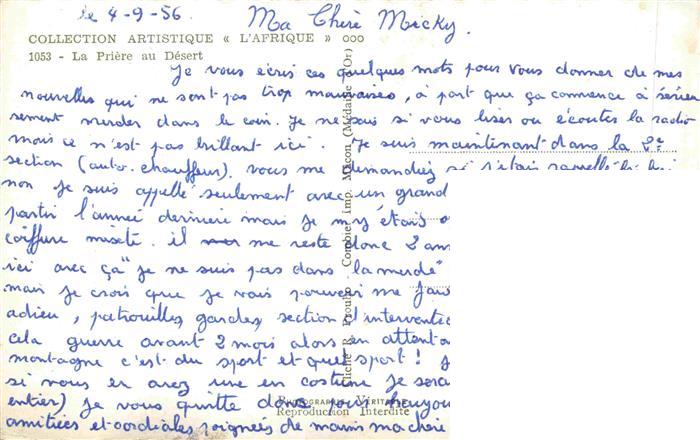 le 4-9-56. Ma Chère Micky.
COLLECTION ARTISTIQUE « L'AFRIQUE » ooo
1053 - La Prière au Désert
Je vous écris ces quelques mots pour vous donner de mes
nouvelles qui ne sont pas trop mauvaises, à part que ça commence à sérieu
sement merder dans le coin. Je ne sais si vous lisez ou écoutez la radio
mais ce n'est pas brillant ici. Je suis maintenant dans la 2e
section (auto. chauffeur). vous me demandiez si j'étais rappelé
non je suis appellé seulement avec un grand
partir l'année dernière mais je m'y étais
coiffure il me reste donc 2 ans
ici avec ça "je ne suis pas dans la merde"
mais je crois que je vais pouvoir me fais
adieu, patrouilles gardes, section d'interventio
cela guerre avant 2 mois alors en attent
montagne c'est du sport et quel sport! J
si vous en avez une en costume je sera
entier) Je vous quitte donc
amitiées et cordiales poignées de mains ma chère
Cliché R. Prouho - Combier Imp. Macon (Médaille d'Or)
PHOTOGRAPHIE VÉRITABLE
Reproduction Interdite